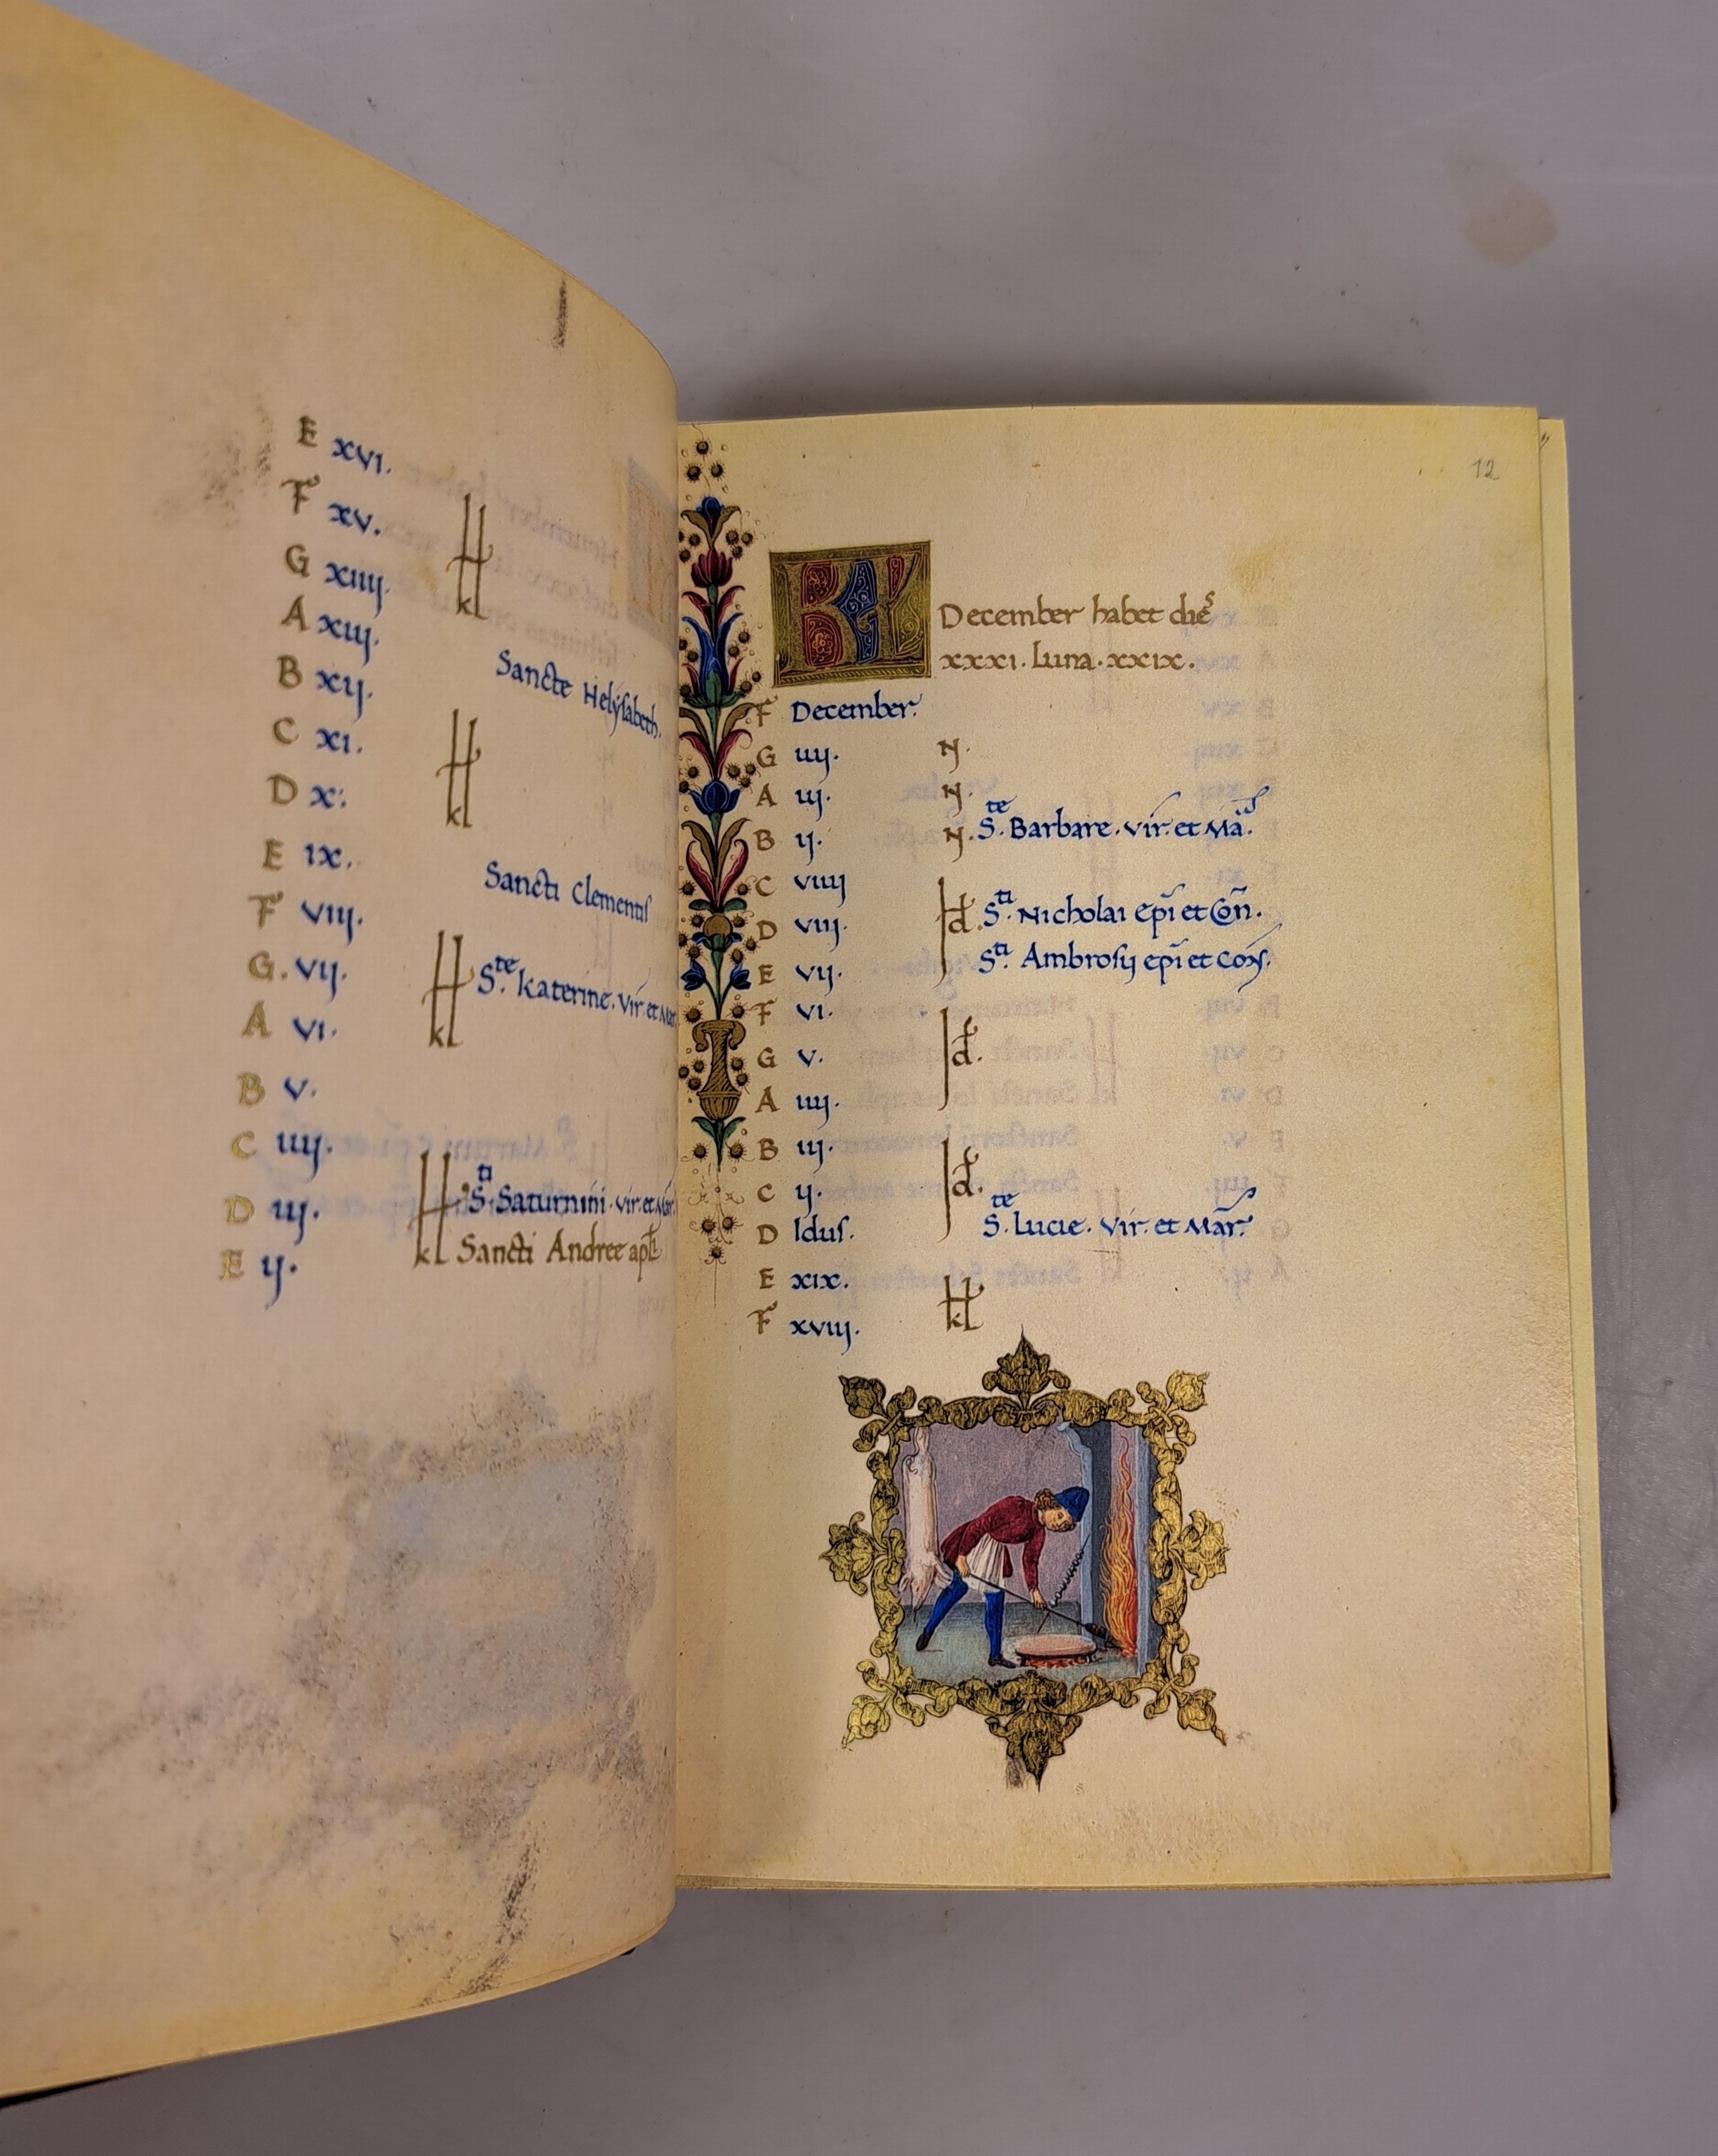 E xvi.
F xv.
G xiiij.
A xiij.
B xij.
Sancte Helysabeth.
C xi.
D x.
kl
E ix.
F viij.
Sancti Clementis
G. vij.
Ste. Katerine. Vir. et Mar
A vi.
kl
B v.
C iiij.
D iij.
Sti. Saturnini. vir. et Mar.
E ij.
kl Sancti Andree apli
12
KL
December habet dies
xxxi. Luna. xxix.
F December.
G iiij. N.
A iij. N.
B ij. N. Ste. Barbare. Vir. et Ma.
C viiij
D viij. Id. Sti. Nicholai epi et Con.
E vij. Sti. Ambrosij epi et Con.
F vi.
G v. Id.
A iiij.
B iij.
C ij. Id.
D Idus. Ste. Lucie. Vir. et Mar.
E xix.
F xviij. kl